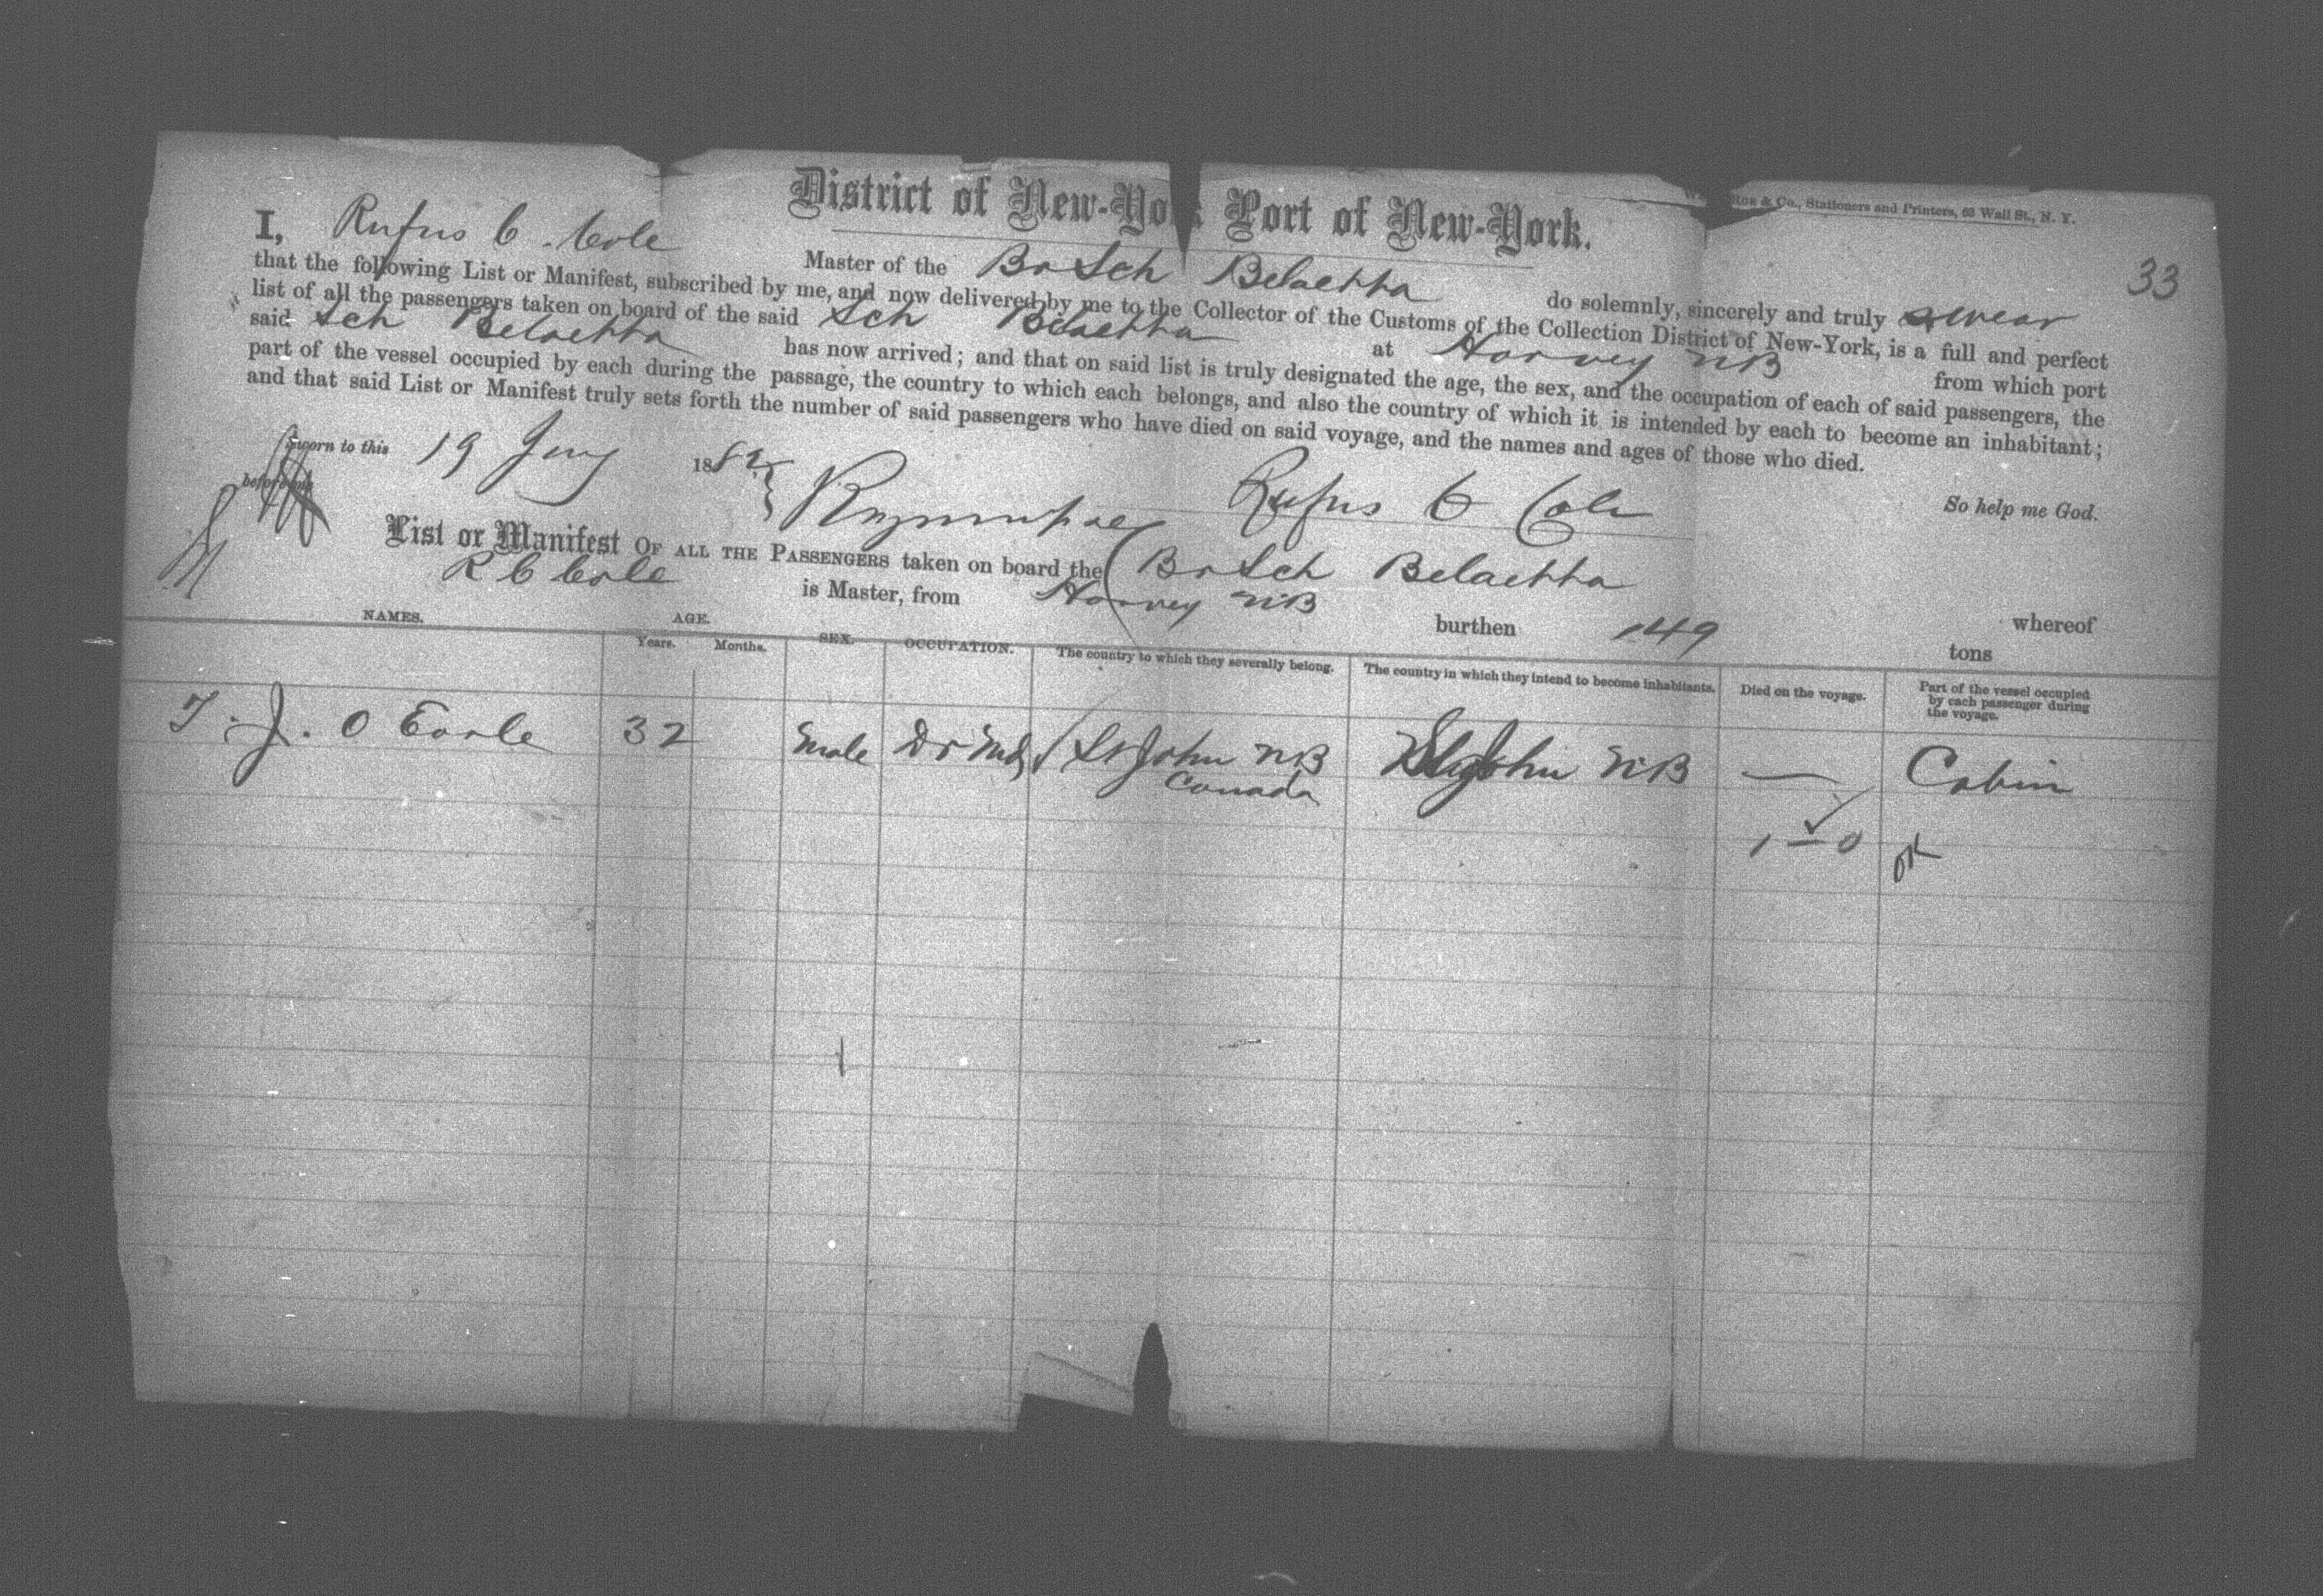 District of New-York Port of New-York.
Ros & Co., Stationers and Printers, 63 Wall St., N. Y.
33
I, Rufus C. Cole Master of the Br Sch Belaetha do solemnly, sincerely and truly swear
that the following List or Manifest, subscribed by me, and now delivered by me to the Collector of the Customs of the Collection District of New-York, is a full and perfect
list of all the passengers taken on board of the said Sch Belaetha at Harvey NB from which port
said Sch Belaetha has now arrived; and that on said list is truly designated the age, the sex, and the occupation of each of said passengers, the
part of the vessel occupied by each during the passage, the country to which each belongs, and also the country of which it is intended by each to become an inhabitant;
and that said List or Manifest truly sets forth the number of said passengers who have died on said voyage, and the names and ages of those who died.
So help me God.
Sworn to this 19 1882 Rufus C Cole
before me
List or Manifest OF ALL THE PASSENGERS taken on board the Br Sch Belaetha whereof
R C Cole is Master, from Harvey NB burthen 149 tons
NAMES. AGE. SEX. OCCUPATION. The country to which they severally belong. The country in which they intend to become inhabitants. Died on the voyage. Part of the vessel occupied by each passenger during the voyage.
Years. Months.
T. J. O Earle 32 Male Dr Md St John NB St John NB — Cabin
Canada
1 — 0 OK
1